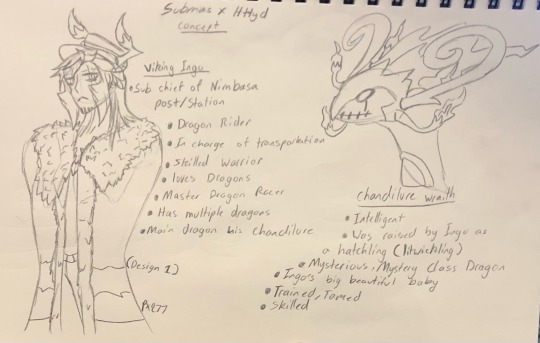 Submas x HTTYD
concept
Viking Ingo
• Sub chief of Nimbasa
post/Station
• Dragon Rider
• In charge of transportation
• Skilled Warrior
• loves Dragons
• Master Dragon Racer
• Has multiple dragons
• Main dragon his chandilure
(Design 1)
Chandilure wraith
• Intelligent
• Was raised by Ingo as
a hatchling (litwickling)
• Mysterious, Mystery class Dragon
• Ingo's big beautiful baby
• Trained, Tamed
• Skilled